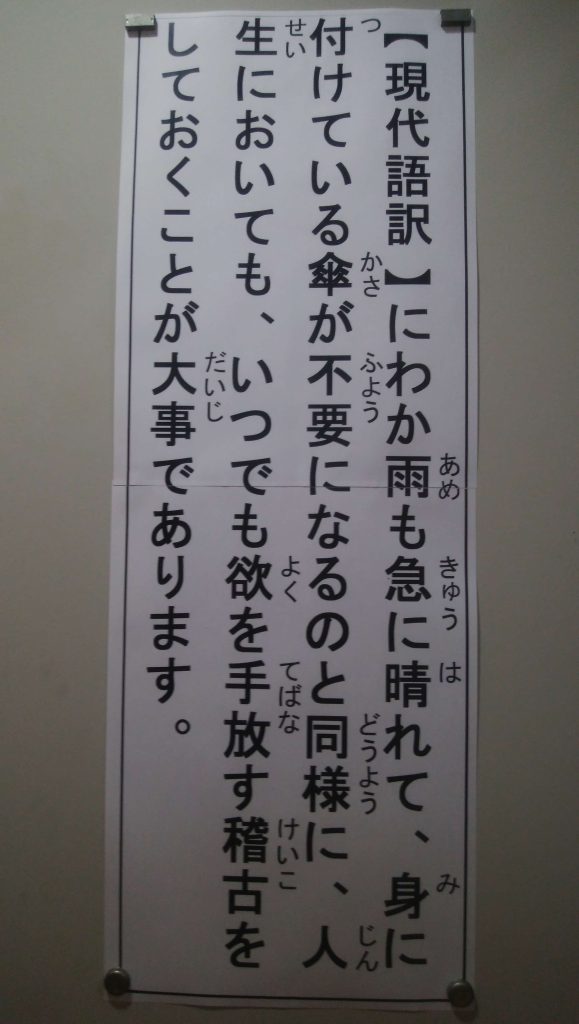 【現代語訳】にわか雨も急に晴れて、身に
付けている傘が不要になるのと同様に、人
生においても、いつでも欲を手放す稽古を
しておくことが大事であります。